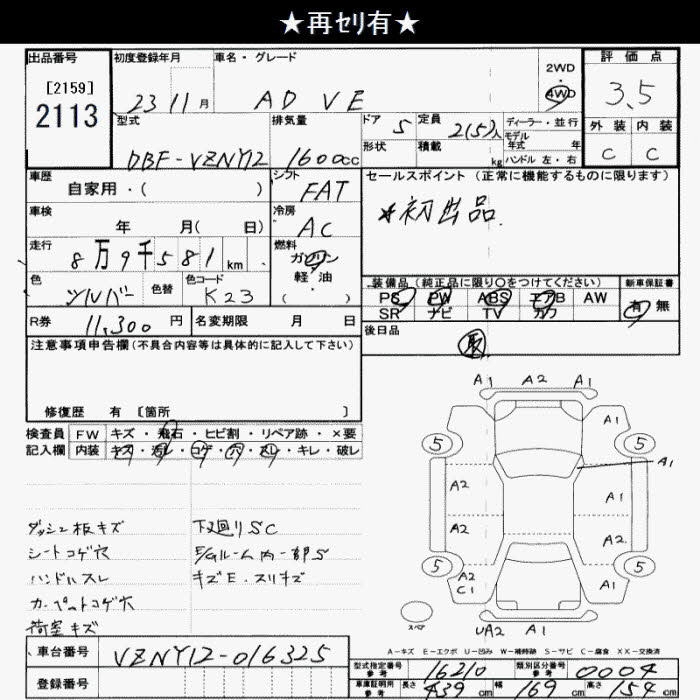 ★再セリ有★
出品番号 初度登録年月 車名・グレード 2WD ・ 4WD 評価点
[2159]
2113
23 11月 AD VE 3.5
型式 排気量 ドア 5 定員 2(5)人 ディーラー・並行 外装 内装
DBF-VZNY12 1600cc 形状 積載 kg モデル年式 年 ハンドル 左・右 C C
車歴 自家用・( ) シフト FAT セールスポイント (正常に機能するものに限ります)
車検 年 月( 日) 冷房 AC *初出品
走行 8万9千581km 燃料 ガソリン・軽油 ( )
色 シルバー 色替 色コード K23 装備品 (純正品に限り○をつけてください) 新車保証書
PS PW ABS エアB AW 有 無
SR ナビ TV カワ
R券 11,300円 名変期限 月 日 後日品
注意事項申告欄 (不具合内容等は具体的に記入して下さい) 取
修復歴 有 [箇所 ]
検査員 FW キズ・飛石・ヒビ割・リペア跡・×要
記入欄 内装 キズ・汚レ・コゲ・穴・スレ・キレ・破レ
A1 A2 A1
A1
5 5
A1
A2 A1
A2 A2
5 5
A2 C1 A1
スペア
UA2 A1
ダッシュ板キズ 下廻りSC
シートコゲ穴 E/Gルーム内一部S
ハンドルスレ キズE・スリキズ
カーペットコゲ穴
荷室キズ
A-キズ E-エクボ U-凹み W-補時跡 S-サビ C-腐食 XX-交換済
車台番号 VZNY12-016325 型式指定番号 参考 16210 類別区分番号 参考 0004
登録番号 車庫証明用 参考 長さ 439cm 幅 169cm 高さ 154cm